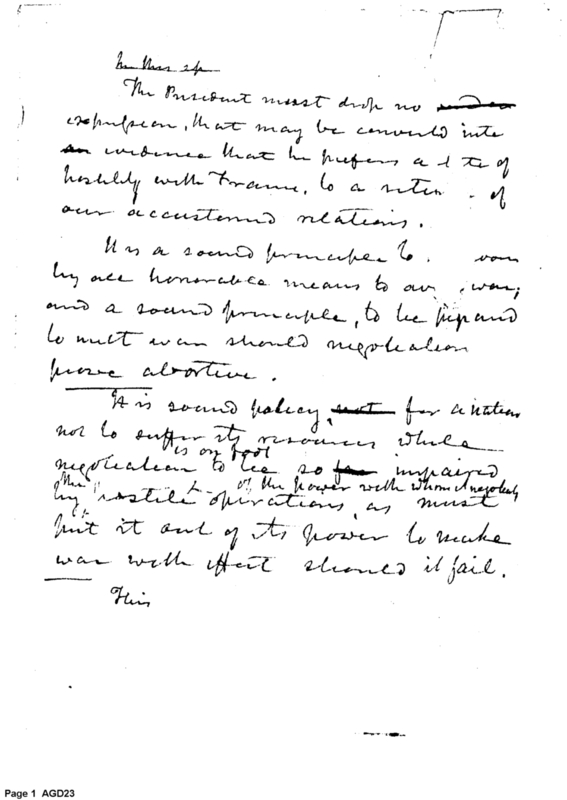 In this sp
The President must drop no
expression, that may be converted into
an evidence that he prefers a s te of
hostility with France, to a retur of
our accustomed relations.
It is a sound principle to
by all honorable means to av war;
and a sound principle, to be prepared
to meet war should negotiation
prove abortive.
It is sound policy, not for a nation
not to suffer its resources while
is on foot
negotiation to be so far impaired
of the power with whom it negotiates
by the hostile operations, as must
put it out of its power to make
war with effect should it fail.
This
Page 1 AGD23